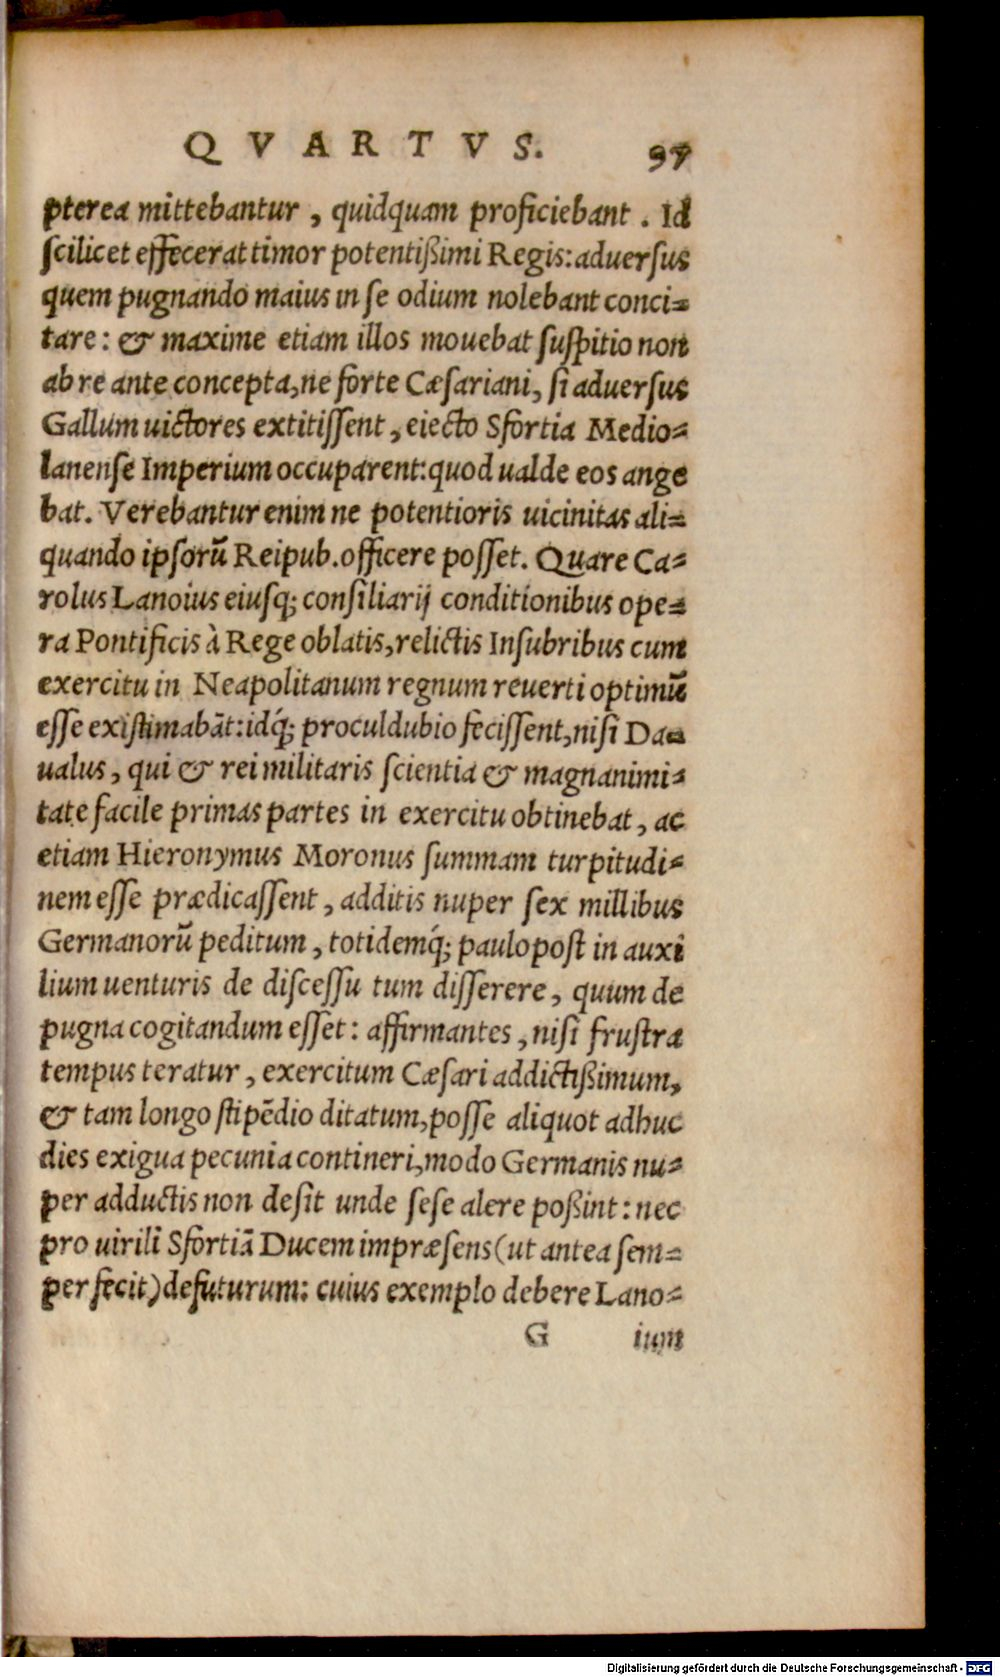 QVARTVS. 97
pterea mittebantur, quidquam proficiebant. Id
scilicet effecerat timor potentißimi Regis: aduersus
quem pugnando maius in se odium nolebant conci-
tare: & maxime etiam illos mouebat suspitio non
ab re ante concepta, ne forte Cæsariani, si aduersus
Gallum uictores extitissent, eiecto Sfortia Medio-
lanense Imperium occuparent: quod ualde eos ange
bat. Verebantur enim ne potentioris uicinitas ali-
quando ipsorũ Reipub. officere posset. Quare Ca-
rolus Lanoius eiusq; consiliarij conditionibus ope-
ra Pontificis à Rege oblatis, relictis Insubribus cum
exercitu in Neapolitanum regnum reuerti optimũ
esse existimabãt: idq́; proculdubio fecissent, nisi Da-
ualus, qui & rei militaris scientia & magnanimi-
tate facile primas partes in exercitu obtinebat, ac
etiam Hieronymus Moronus summam turpitudi-
nem esse prædicassent, additis nuper sex millibus
Germanorũ peditum, totidemq́; paulo post in auxi
lium uenturis de discessu tum disserere, quum de
pugna cogitandum esset: affirmantes, nisi frustra
tempus teratur, exercitum Cæsari addictißimum,
& tam longo stipẽdio ditatum, posse aliquot adhuc
dies exigua pecunia contineri, modo Germanis nu-
per adductis non desit unde sese alere poßint: nec
pro uirili Sfortiã Ducem impræsens (ut antea sem-
per fecit) defuturum: cuius exemplo debere Lano-
G ium
Digitalisierung gefördert durch die Deutsche Forschungsgemeinschaft - DFG